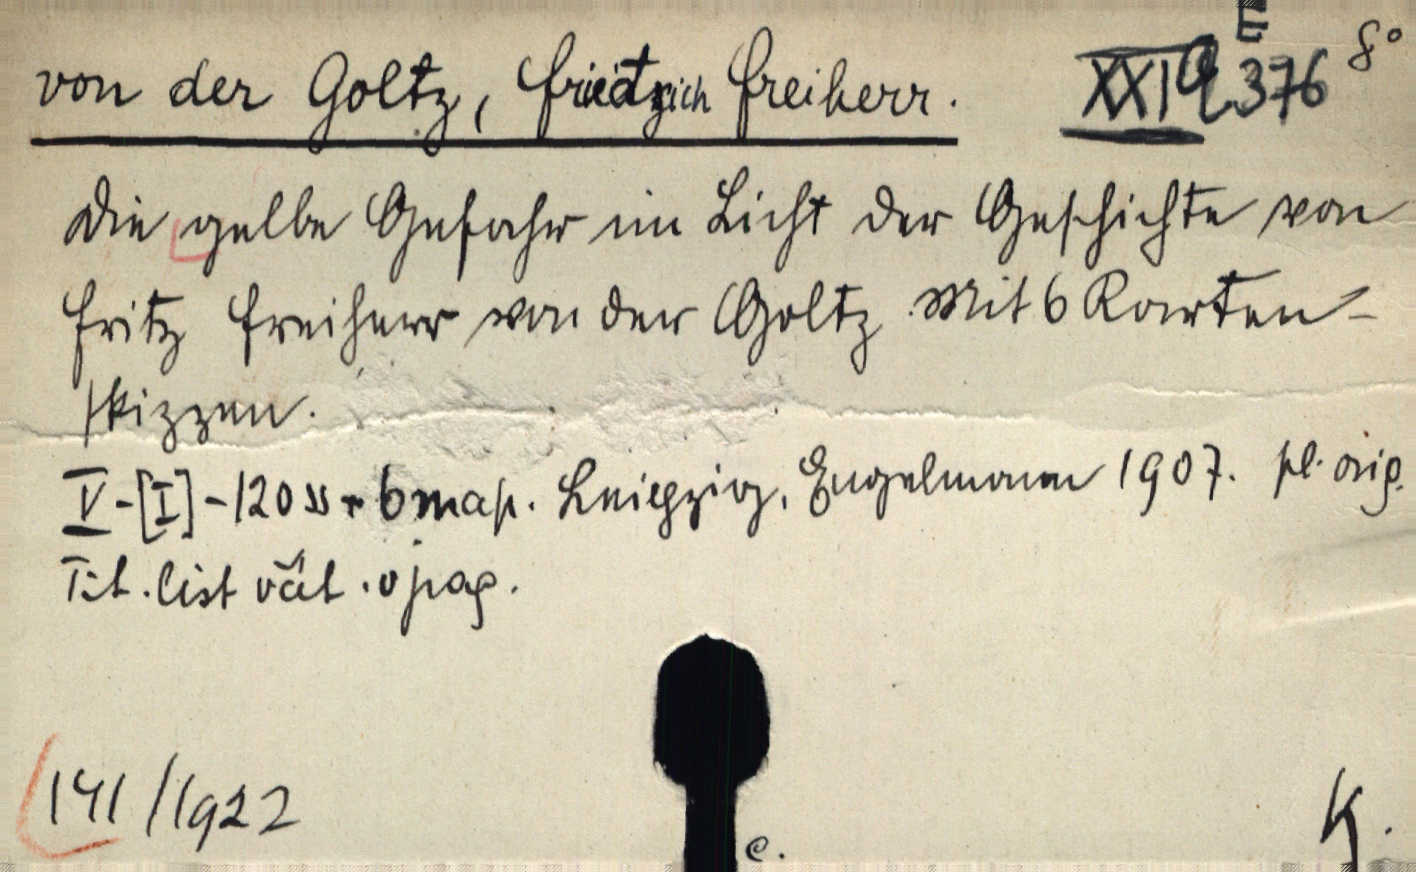 von der Goltz, Friedrich Freiherr. XXI Q 376 E 8°
Die gelbe Gefahr im Licht der Geschichte von
Fritz Freiherr von der Goltz. Mit 6 Karten-
skizzen.
V-[I]-120 ss + 6 map. Leipzig, Engelmann 1907. pl. orig.
Tit. list vät. v pag.
141/1922
e.
K.